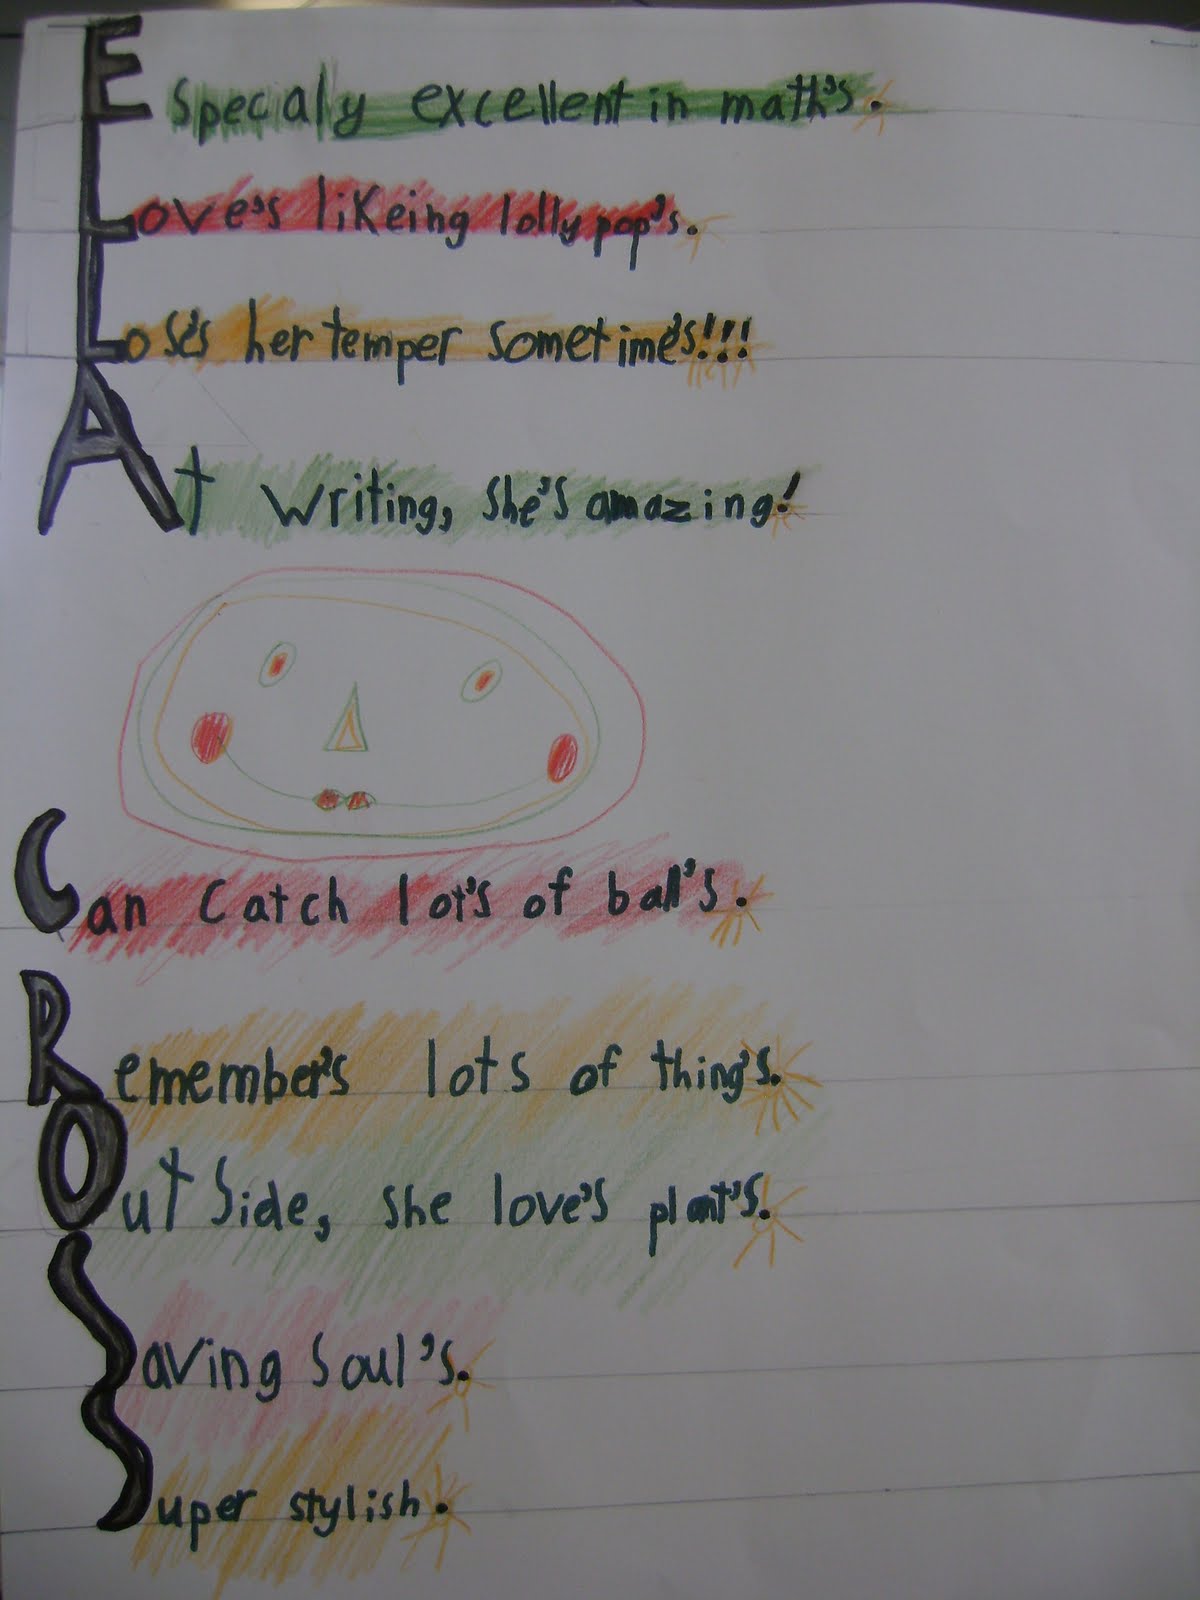 Especialy excellent in math's.
Love's likeing lolly pop's.
Lose's her temper sometime's!!!
At writing, she's amazing!
Can catch lot's of ball's.
Remember's lots of thing's.
Out Side, she love's plant's.
Saving Soul's.
Super stylish.